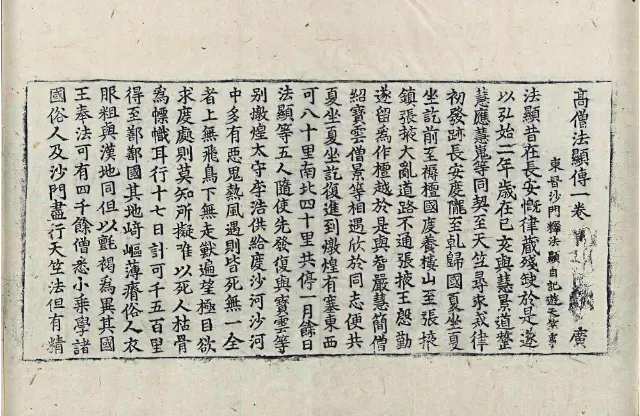 高僧法顯傳一卷 廣
東晉沙門釋法顯自記遊天竺事
法顯昔在長安慨律藏殘缺於是遂
以弘始二年歲在已亥與慧景道整
慧應慧嵬等同契至天竺尋求戒律
初發跡長安度隴至乹歸國夏坐夏
坐訖前至褥檀國度養樓山至張掖
鎮張掖大亂道路不通張掖王慇勤
遂留為作檀越於是與智嚴慧簡僧
紹寶雲僧景等相遇欣於同志便共
夏坐夏坐訖復進到燉煌有塞東西
可八十里南北四十里共停一月餘日
法顯等五人隨使先發復與寶雲等
別燉煌太守李浩供給度沙河沙河
中多有惡鬼熱風遇則皆死無一全
者上無飛鳥下無走獸遍望極目欲
求度處則莫知所擬唯以死人枯骨
為幖幟耳行十七日計可千五百里
得至鄯鄯國其地崎嶇薄瘠俗人衣
服粗與漢地同但以氈褐為異其國
王奉法可有四千餘僧悉小乘學諸
國俗人及沙門盡行天竺法但有精